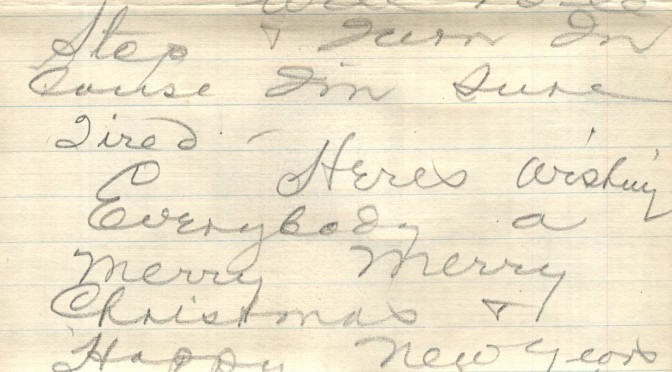 Stop & Turn In
Cause I'm Sure
Tired - Heres Wishing
Everybody a
Merry Merry
Christmas &
Happy New Years